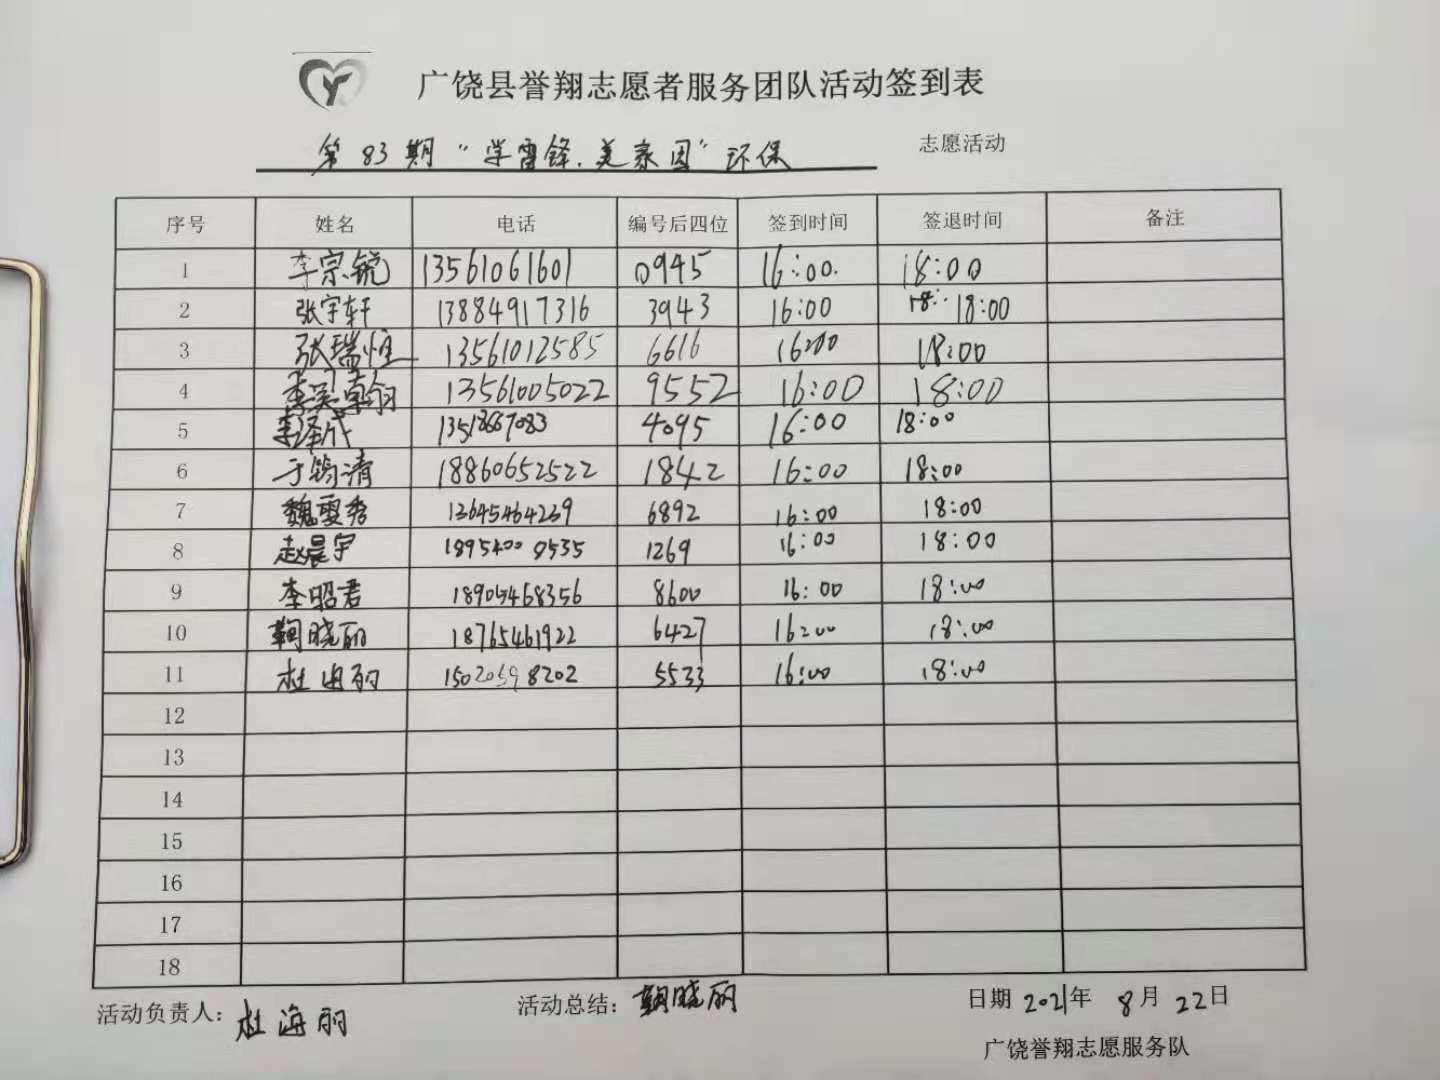 广饶县誉翔志愿者服务团队活动签到表
第83期“学雷锋.美家园”环保 志愿活动
序号 姓名 电话 编号后四位 签到时间 签退时间 备注
1 李宗锐 13561061601 0945 16:00. 18:00
2 张宇轩 13884917316 3943 16:00 18: 18:00
3 张瑞恒 13561012585 6616 16:00 18:00
4 李昊翰 13561005022 9552 16:00 18:00
5 李泽成 4095 16:00 18:00
6 于筠清 18860652522 1842 16:00 18:00
7 魏雯秀 13645464239 6892 16:00 18:00
8 赵晨宇 18954000535 1269 16:00 18:00
9 李昭君 18905468356 8600 16:00 18:00
10 鞠晓丽 18765461922 6427 16:00 18:00
11 杜海丽 15020598202 5533 16:00 18:00
12
13
14
15
16
17
18
活动负责人：杜海丽 活动总结：鞠晓丽 日期 2021年 8月 22日
广饶誉翔志愿服务队